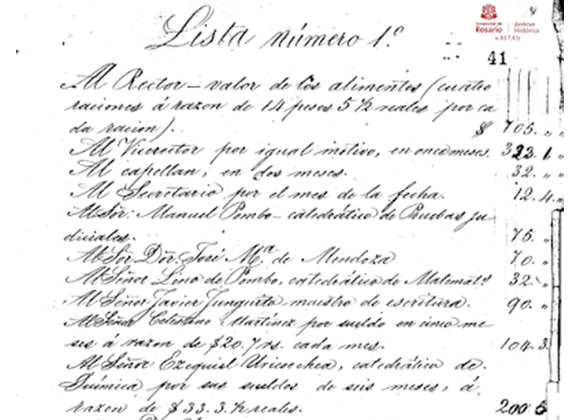 Universidad del
Rosario
Archivo
Histórico
v.43 f.41r
4
Lista número 1.º
41
Al Rector – valor de los alimentos (cuatro
raciones á razon de 14 pesos 5½ reales por ca
da racion). $ 705. "
Al Vicerector por igual motivo, en once meses. 323. 1 "
Al capellan, en dos meses. 32. "
Al Secretario por el mes de la fecha. 12. 4. "
Al Sôr. Manuel Pombo – catedrático de Pruebas ju
diciales. 75. "
Al Sôr Dôr. José Mª. de Mendoza 70. "
Al Señor Lino de Pombo, catedrático de Matematˢ 32. "
Al Señor Javier Junguito maestro de escritura. 90. "
Al Señor Celestino Martínez por sueldo en cinco me
ses á razon de $20.7 rs. cada mes. 104. 3.
Al Señor Ezequiel Uricoechea, catedrático de
Química por sus sueldos de seis meses, á
razon de $33.3½ reales. 200 5